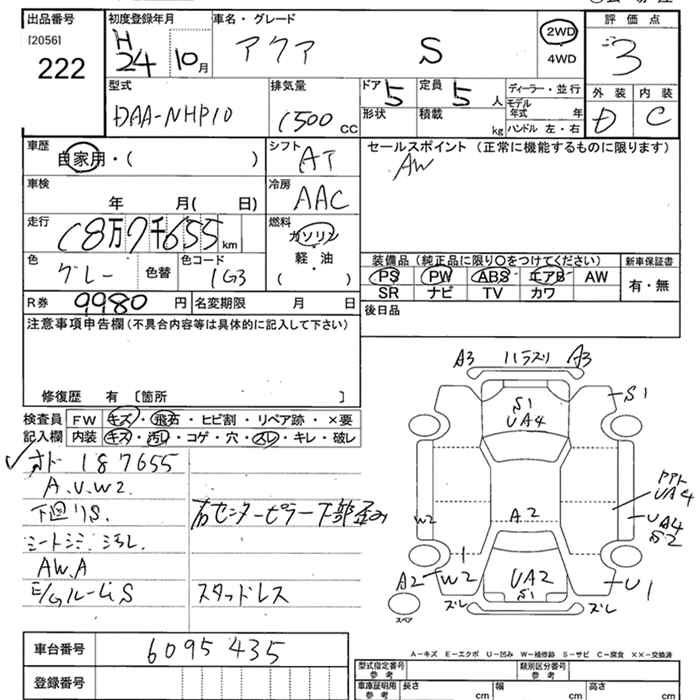 出品番号 初度登録年月 車名・グレード 評価点
[2056] H 24 10月 アクア S 2WD 3
222 4WD
型式 排気量 ドア 5 定員 5人 ディーラー・並行 外装 内装
DAA-NHP10 1500 CC 形状 積載 kg モデル年式 年 D C
ハンドル 左・右
車歴 シフト セールスポイント (正常に機能するものに限ります)
自家用・( ) AT AW
車検 冷房
年 月( 日) AAC
走行 燃料
18万7千655km ガソリン
色 色替 色コード 軽・油 装備品 (純正品に限り〇をつけてください) 新車保証書
グレー 1G3 ( ) PS PW ABS エアB AW 有・無
R券 9980円 名変期限 月 日 SR ナビ TV カワ
注意事項申告欄(不具合内容等は具体的に記入して下さい) 後日品
修復歴 有 〔箇所 〕
検査員 FW キズ・飛石・ヒビ割・リペア跡・×要
記入欄 内装 キズ・汚レ・コゲ・穴・スレ・キレ・破レ
オド 187655
A.U.W2.
下廻りS. 右センターピラー下部歪み
シートシミ 汚レ.
AW.A
E/GルームS スタッドレス
A3 ハラスリ A3
S1
S1
UA4
UA4
UA4
S2
W2 A2
A2 W2 UA2 U1
S1
ズレ ズレ
スペア
A-キズ E-エクボ U-凹み W-補修跡 S-サビ C-腐食 ××-交換済
車台番号 6095435
登録番号
型式指定番号 参考 類別区分番号 参考
車庫証明用 参考 長さ cm 幅 cm 高さ cm